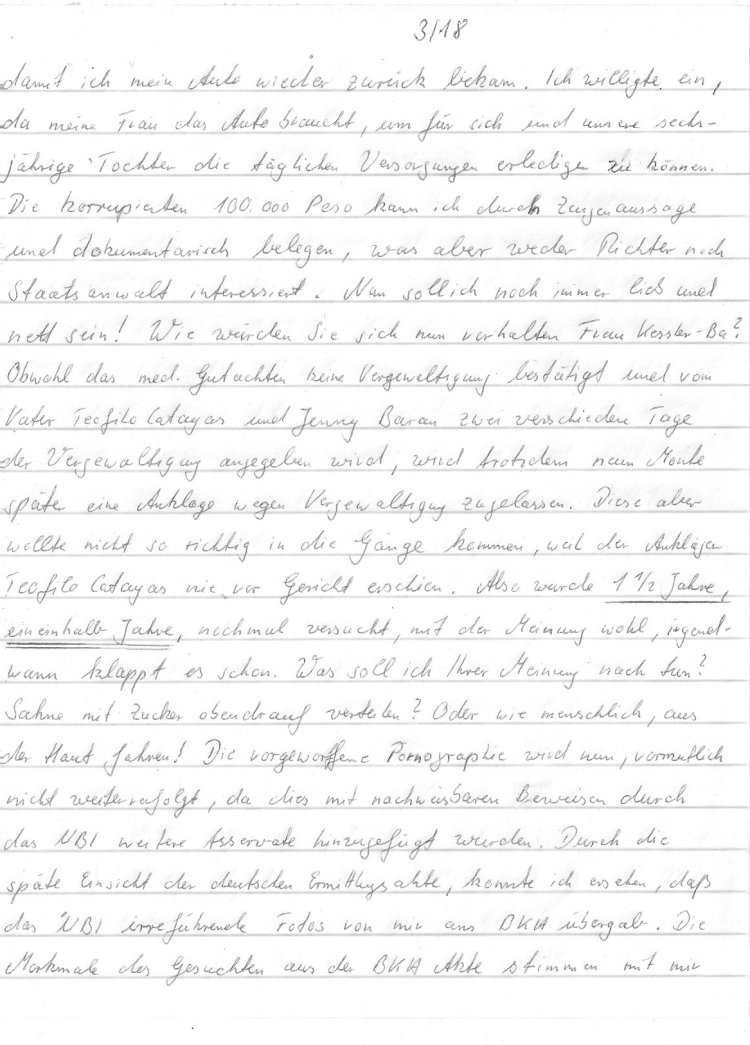 3/18
damit ich mein Auto wieder zurück bekam. Ich willigte ein,
da meine Frau das Auto braucht, um für sich und unsere sechs-
jährige Tochter die täglichen Versorgungen erledigen zu können.
Die korrupierten 100.000 Peso kann ich durch Zeugenaussage
und dokumentarisch belegen, was aber weder Richter noch
Staatsanwalt interessiert. Nun soll ich noch immer lieb und
nett sein! Wie würden Sie sich nun verhalten Frau Kessler-Ba?
Obwohl das med. Gutachten keine Vergewaltigung bestätigt und vom
Vater Teofilo Catayas und Jenny Baran zwei verschiedene Tage
der Vergewaltigung angegeben wird, wird trotzdem neun Monte
später eine Anklage wegen Vergewaltigung zugelassen. Diese aber
wollte nicht so richtig in die Gänge kommen, weil der Ankläger
Teofilo Catayas nie vor Gericht erschien. Also wurde 1 1/2 Jahre,
eineinhalb Jahre, nochmal versucht, mit der Meinung wohl, irgend-
wann klappt es schon. Was soll ich Ihrer Meinung nach tun?
Sahne mit Zucker obendrauf verteilen? Oder wie menschlich, aus
der Haut fahren! Die vorgeworffene Pornographie wird nun, vermutlich
nicht weiterverfolgt, da dies mit nachweisbaren Beweisen durch
das NBI weitere Asservate hinzugefügt wurden. Durch die
späte Einsicht der deutschen Ermittlungsakte, konnte ich ersehen, daß
das NBI irreführende Fotos von mir ans BKA übergab. Die
Merkmale des Gesuchten aus der BKA Akte stimmen mit mir